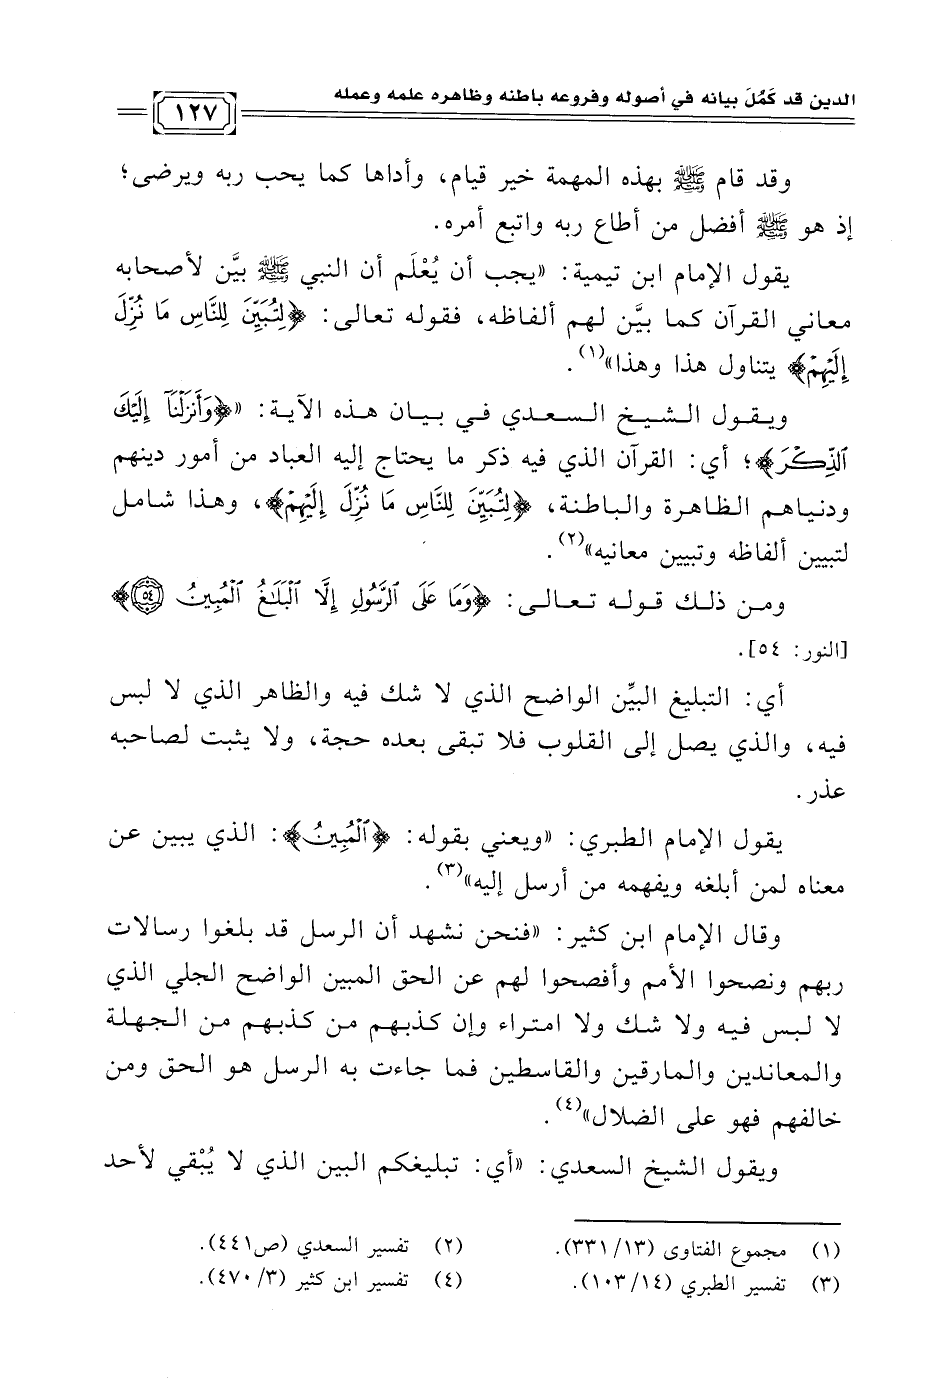 الدين قد كَمُلَ بيانه في أصوله وفروعه باطنه وظاهره علمه وعمله
١٢٧
وقد قام ﷺ بهذه المهمة خير قيام، وأداها كما يحب ربه ويرضى؛
إذ هو ﷺ أفضل من أطاع ربه واتبع أمره.
يقول الإمام ابن تيمية: «يجب أن يُعْلَم أن النبي ﷺ بيَّن لأصحابه
معاني القرآن كما بيَّن لهم ألفاظه، فقوله تعالى: ﴿لِتُبَيِّنَ لِلنَّاسِ مَا نُزِّلَ
إِلَيْهِمْ﴾ يتناول هذا وهذا»(١).
ويقول الشيخ السعدي في بيان هذه الآية: «﴿وَأَنزَلْنَآ إِلَيْكَ
ٱلذِّكْرَ﴾؛ أي: القرآن الذي فيه ذكر ما يحتاج إليه العباد من أمور دينهم
ودنياهم الظاهرة والباطنة، ﴿لِتُبَيِّنَ لِلنَّاسِ مَا نُزِّلَ إِلَيْهِمْ﴾، وهذا شامل
لتبيين ألفاظه وتبيين معانيه»(٢).
ومن ذلك قوله تعالى: ﴿وَمَا عَلَى ٱلرَّسُولِ إِلَّا ٱلْبَلَٰغُ ٱلْمُبِينُ ٥٤﴾
[النور: ٥٤].
أي: التبليغ البيِّن الواضح الذي لا شك فيه والظاهر الذي لا لبس
فيه، والذي يصل إلى القلوب فلا تبقى بعده حجة، ولا يثبت لصاحبه
عذر.
يقول الإمام الطبري: «ويعني بقوله: ﴿ٱلْمُبِينُ﴾: الذي يبين عن
معناه لمن أبلغه ويفهمه من أرسل إليه»(٣).
وقال الإمام ابن كثير: «فنحن نشهد أن الرسل قد بلغوا رسالات
ربهم ونصحوا الأمم وأفصحوا لهم عن الحق المبين الواضح الجلي الذي
لا لبس فيه ولا شك ولا امتراء وإن كذبهم من كذبهم من الجهلة
والمعاندين والمارقين والقاسطين فما جاءت به الرسل هو الحق ومن
خالفهم فهو على الضلال»(٤).
ويقول الشيخ السعدي: «أي: تبليغكم البين الذي لا يُبْقي لأحد
(١) مجموع الفتاوى (٣٣١/١٣). (٢) تفسير السعدي (ص٤٤١).
(٣) تفسير الطبري (١٠٣/١٤). (٤) تفسير ابن كثير (٤٧٠/٣).